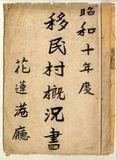 昭和十年度
移民村概況書
花蓮港廳